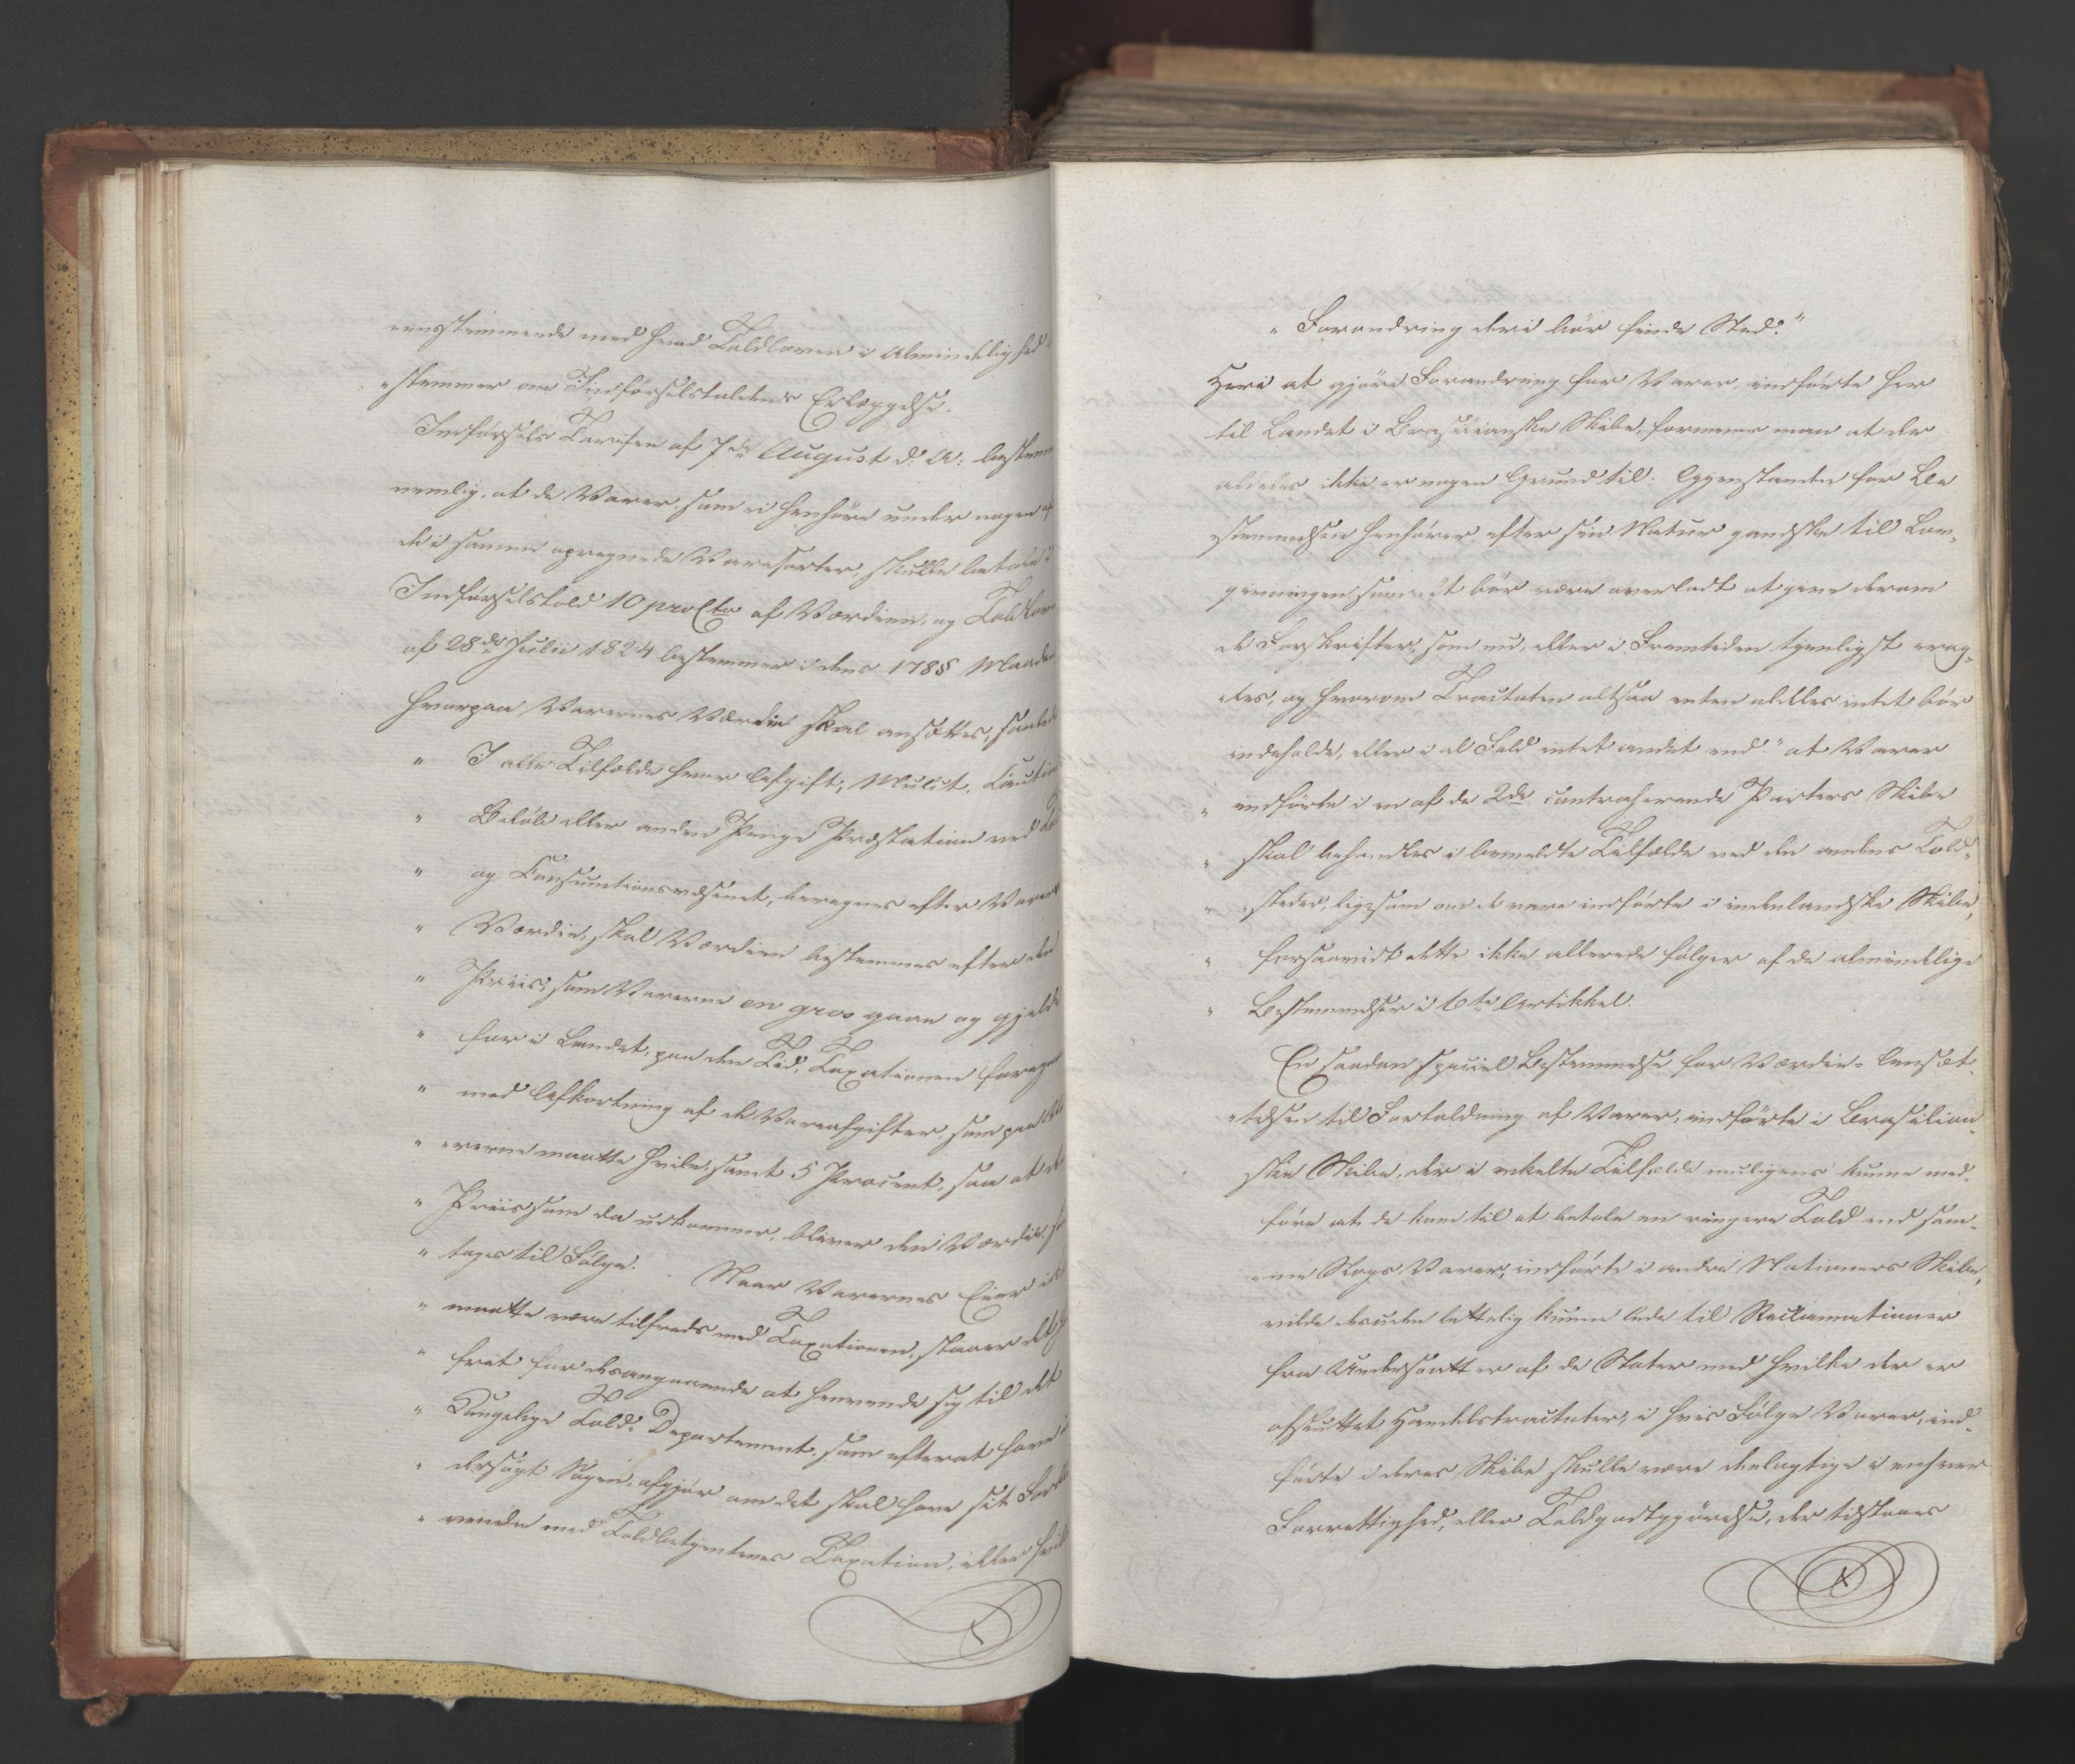 eensstemmende med hvad Toldloven i Almindelighed
„stemmer om Indførselstoldens Erlæggelse.
Indførsels Tariffen af 7de August d: A: bestem
nemlig, at de Varer, som ei henhøre under nogen af
de i samme opregnede Varesorter, skulle betale i
Indførselstold 10 proCto af Værdien, og Toldlov
af 28de Julii 1824 bestemmer i dens 178§ Maaden
hvorpaa Varernes Værdie skal ansættes, saaled
„ I alle Tilfælde hvor Afgift, Mulct, Caution
„ Beløb eller anden Penge Præstation ved Told
„ og Consumtionsvæsenet, beregnes efter Varer
„ Værdie, skal Værdien bestemmes efter den
„ Priis, som Varerne en gros gaae og gjelde
„ for i Landet, paa den Tid, Taxationen foregaar
„ med Afkortning af de Vareafgifter, som paa Va
„ rerne maatte hvile, samt 5 Procent, saa at den
„ Priis som da udkommer, bliver den Værdie, so
„ tages til Følge. Naar Varernes Eier ik
„ maatte være tilfreds med Taxationen, staaer det h
„ frit for desangaaende at henvende sig til det
„ Kongelige Told-Departement, som efterat have
„ dersøgt Sagen, afgjør om det skal have sit For
„ vende med Toldbetjentenes Taxation, eller hvil
„ Forandring deri bør finde Sted."
Heri at gjøre Forandring for Varer, indførte her
til Landet i Brasilianske Skibe, formener man at der
aldeles ikke er nogen Grund til. Gjenstanden for Be
stemmelsen henhører efter sin Natur gandske til Lov„
givningen, som det bør være overladt at give derom
de Forskrifter, som nu, eller i Fremtiden tjenligst erag„
tes, og hvorom Tractaten altsaa enten aldeles intet bør
indeholde, eller i al Fald intet andet end: „at Varer
„ indførte i en af de 2de contraherende Parters Skibe
„ skal behandles i bemeldte Tilfælde ved den andens Told„
„ steder, ligesom om de vare indførte i indenlandske Skibe,
„ forsaavidt dette ikke allerede følger af de almindelige
„ Bestemmelser i 6te Artikkel.
En saadan speciel Bestemmelse for Værdie-Ansæt„
telsen til Fortoldning af Varer, indførte i Brasilian„
ske Skibe, der i enkelte Tilfælde muligens kunne med„
føre at de kom til at betale en ringere Told end sam„
me Slags Varer, indførte i andre Nationers Skibe,
vilde desuden lettelig kunne lede til Reclamationer
fra Undersaatter af de Stater med hvilke der er
afsluttet Handelstractater, i hvis Følge Varer, ind„
førte i deres Skibe skulle være deelagtige i enhver
Forrettighed, eller Toldgodtgjørelse, der tilstaaes